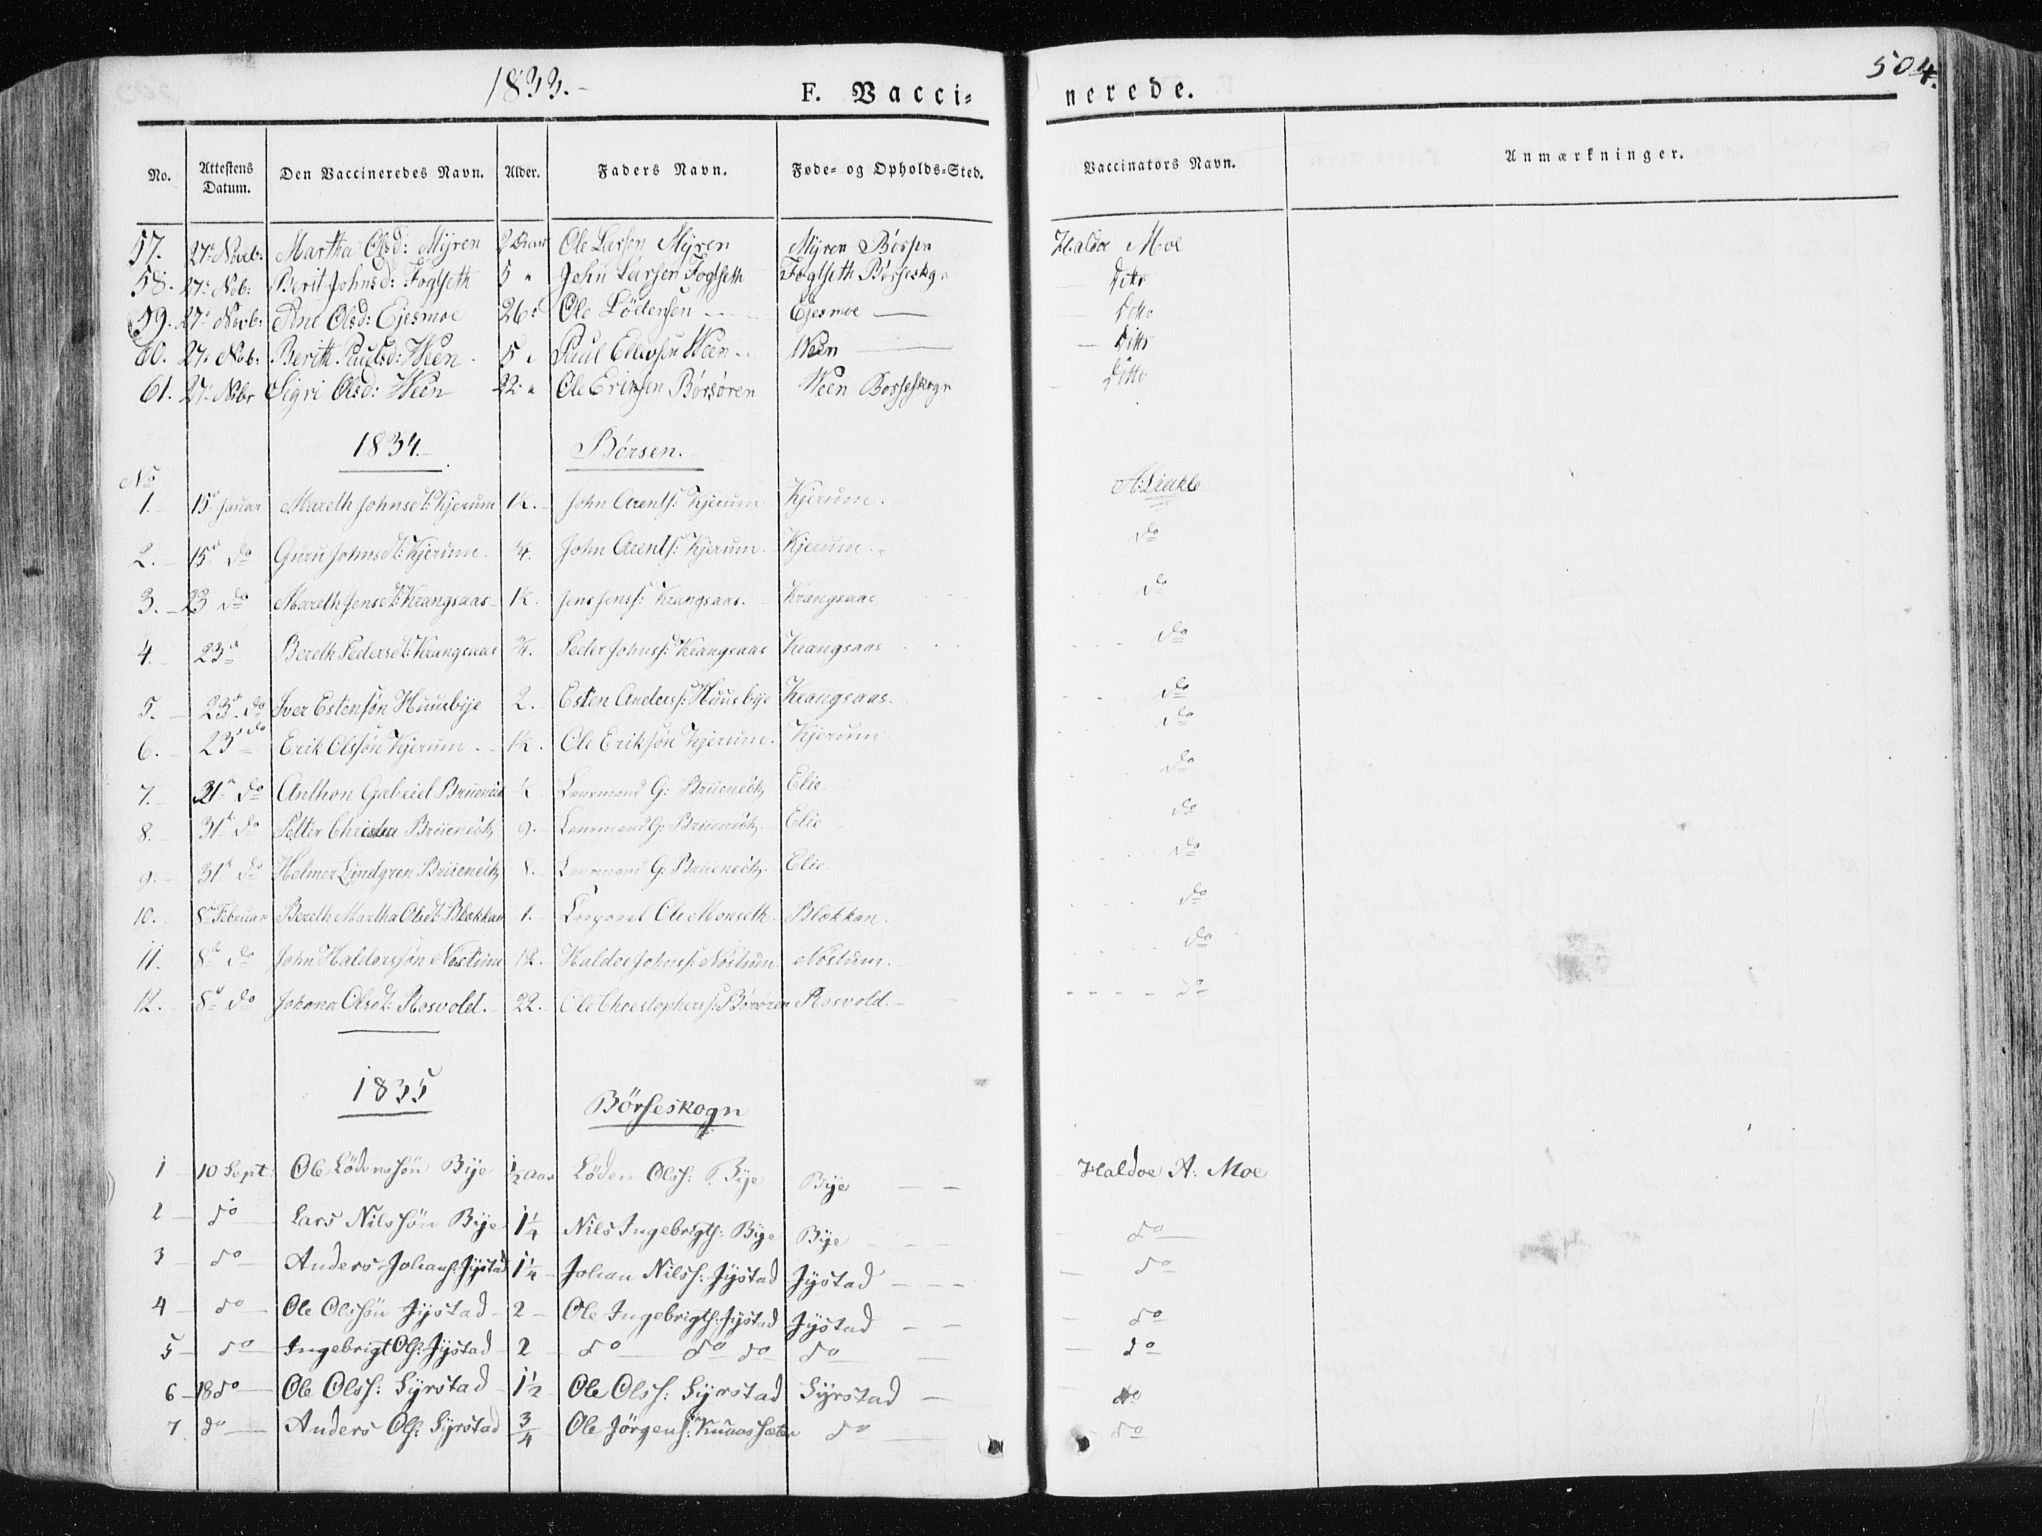 1833.
F. Vacci=
nerede.
504.
No. Attestens Datum. Den Vaccineredes Navn. Alder. Faders Navn. Føde- og Opholds-Sted. Vaccinators Navn. Anmærkninger.
57. 27: Novb: Martha Olsd: Myren 2 Ole Larsen Myren Myren Børsen Haldor Moe
58. 27: Nob: Berit Johnsd: Foglseth 5 " John Larsen Foglseth Foglseth Børseskogn Ditto
59. 27: Novb: Ane Olsd: Ejesmoe 26: Ole Lödensen Ejesmoe Ditto
60. 27: Nob: Berith Paulsd: Ween 5 " Paul Ellevsen Ween Ween Ditto
61. 27: Nobr Sigri Olsd: Ween 22: " Ole Eriksen Börsören Ween Børseskogn Ditto
1834. Børsen.
No
1. 15d Januar Mareth Johnsdt: Kjerum John Arents: Kjerum Kjerum.
2. 15d do Guru Johnsdt: Kjerum. John Arents: Kjerum. Kjerum. do
3. 23 do Mareth Jensdt: Krangsaas Jens Jenss: Krangsaas. Krangsaas do
4. 23d Bereth Pedersdt: Krangsaas Peder Johnss: Krangsaas Krangsaas do
5. 23d do Iver Estensøn Huusbye 2. Esten Anderss: Huusbye Krangsaas. do
6. 23d do Erik Olssøn Kjerum. Ole Eriksøn Kjerum. Kjerum do
7. 31d do Anthon Gabriel Brüenech Lensmand G: Brüenech Elie do
8. 31d do Petter Brüenech 9. Lensmand G: Brüenech. Elie do
9. 31d do Helmer Lundgren Brüenech 8. Lensmand G: Brüenech. Elie. do
10. 8d Februar Bereth Martha Olsdt: Blokkan 1. Corporal Ole Monseth. Blokkan. do
11. 8d do John Haldorssøn Nøstum 12. Haldor Johnss: Nøstum Nøstum. do
12. 8d do Johana Olsdt: Rosvold. 22. Ole Christophers: Børsøren Rosvold. do
1835 Børseskogn
1 10 Sept: Ole Lödenssön Bye 1/2 Aar Löden Olss: Bye Bye Haldor A: Moe
2 do Lars Nilssön Bye 1 1/4 Nils Ingebrigts: Bye Bye do
3 do Anders Johans: Jystad 1 1/4 Johan Nilss: Jystad Jystad do
4 do Ole Olssön Jystad 2 Ole Ingebrigts: Jystad Jystad do
5 do Ingebrigt Ols: Jystad 2 do do do do do
6 18 do Ole Olss: Syrstad 1 1/2 Ole Olss: Syrstad Syrstad do
7 do Anders Ols: Syrstad 3/4 Ole Jörgens: do do